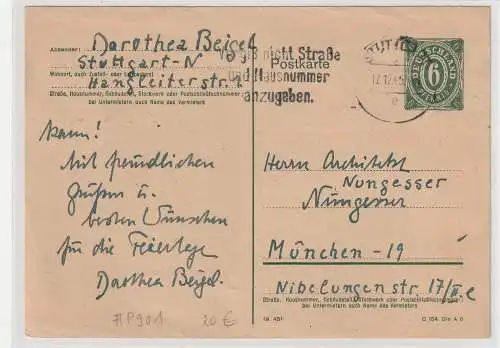 Absender: Dorothea Beigel
Stuttgart-N
Wohnort, auch Zustell- oder Leitpostamt
Hangleiterstr.
Straße, Hausnummer, Gebäudeteil, Stockwerk oder Postschließfachnummer
bei Untermietern auch Name des Vermieters
Vergiß nicht Straße
Postkarte
und Hausnummer
anzugeben.
DEUTSCHLAND
6
PFENNIG
kann!
Mit freundlichen
Grüßen u.
besten Wünschen
für die Feiertage
Dorothea Beigel.
#P901 20 €
Herrn Architekt
Nungesser
Nüngesser
München - 19
Nibelungenstr. 17/II. e
Straße, Hausnummer, Gebäudeteil, Stockwerk oder Postschließfachnummer
bei Untermietern auch Name des Vermieters
C 154 Din A 6